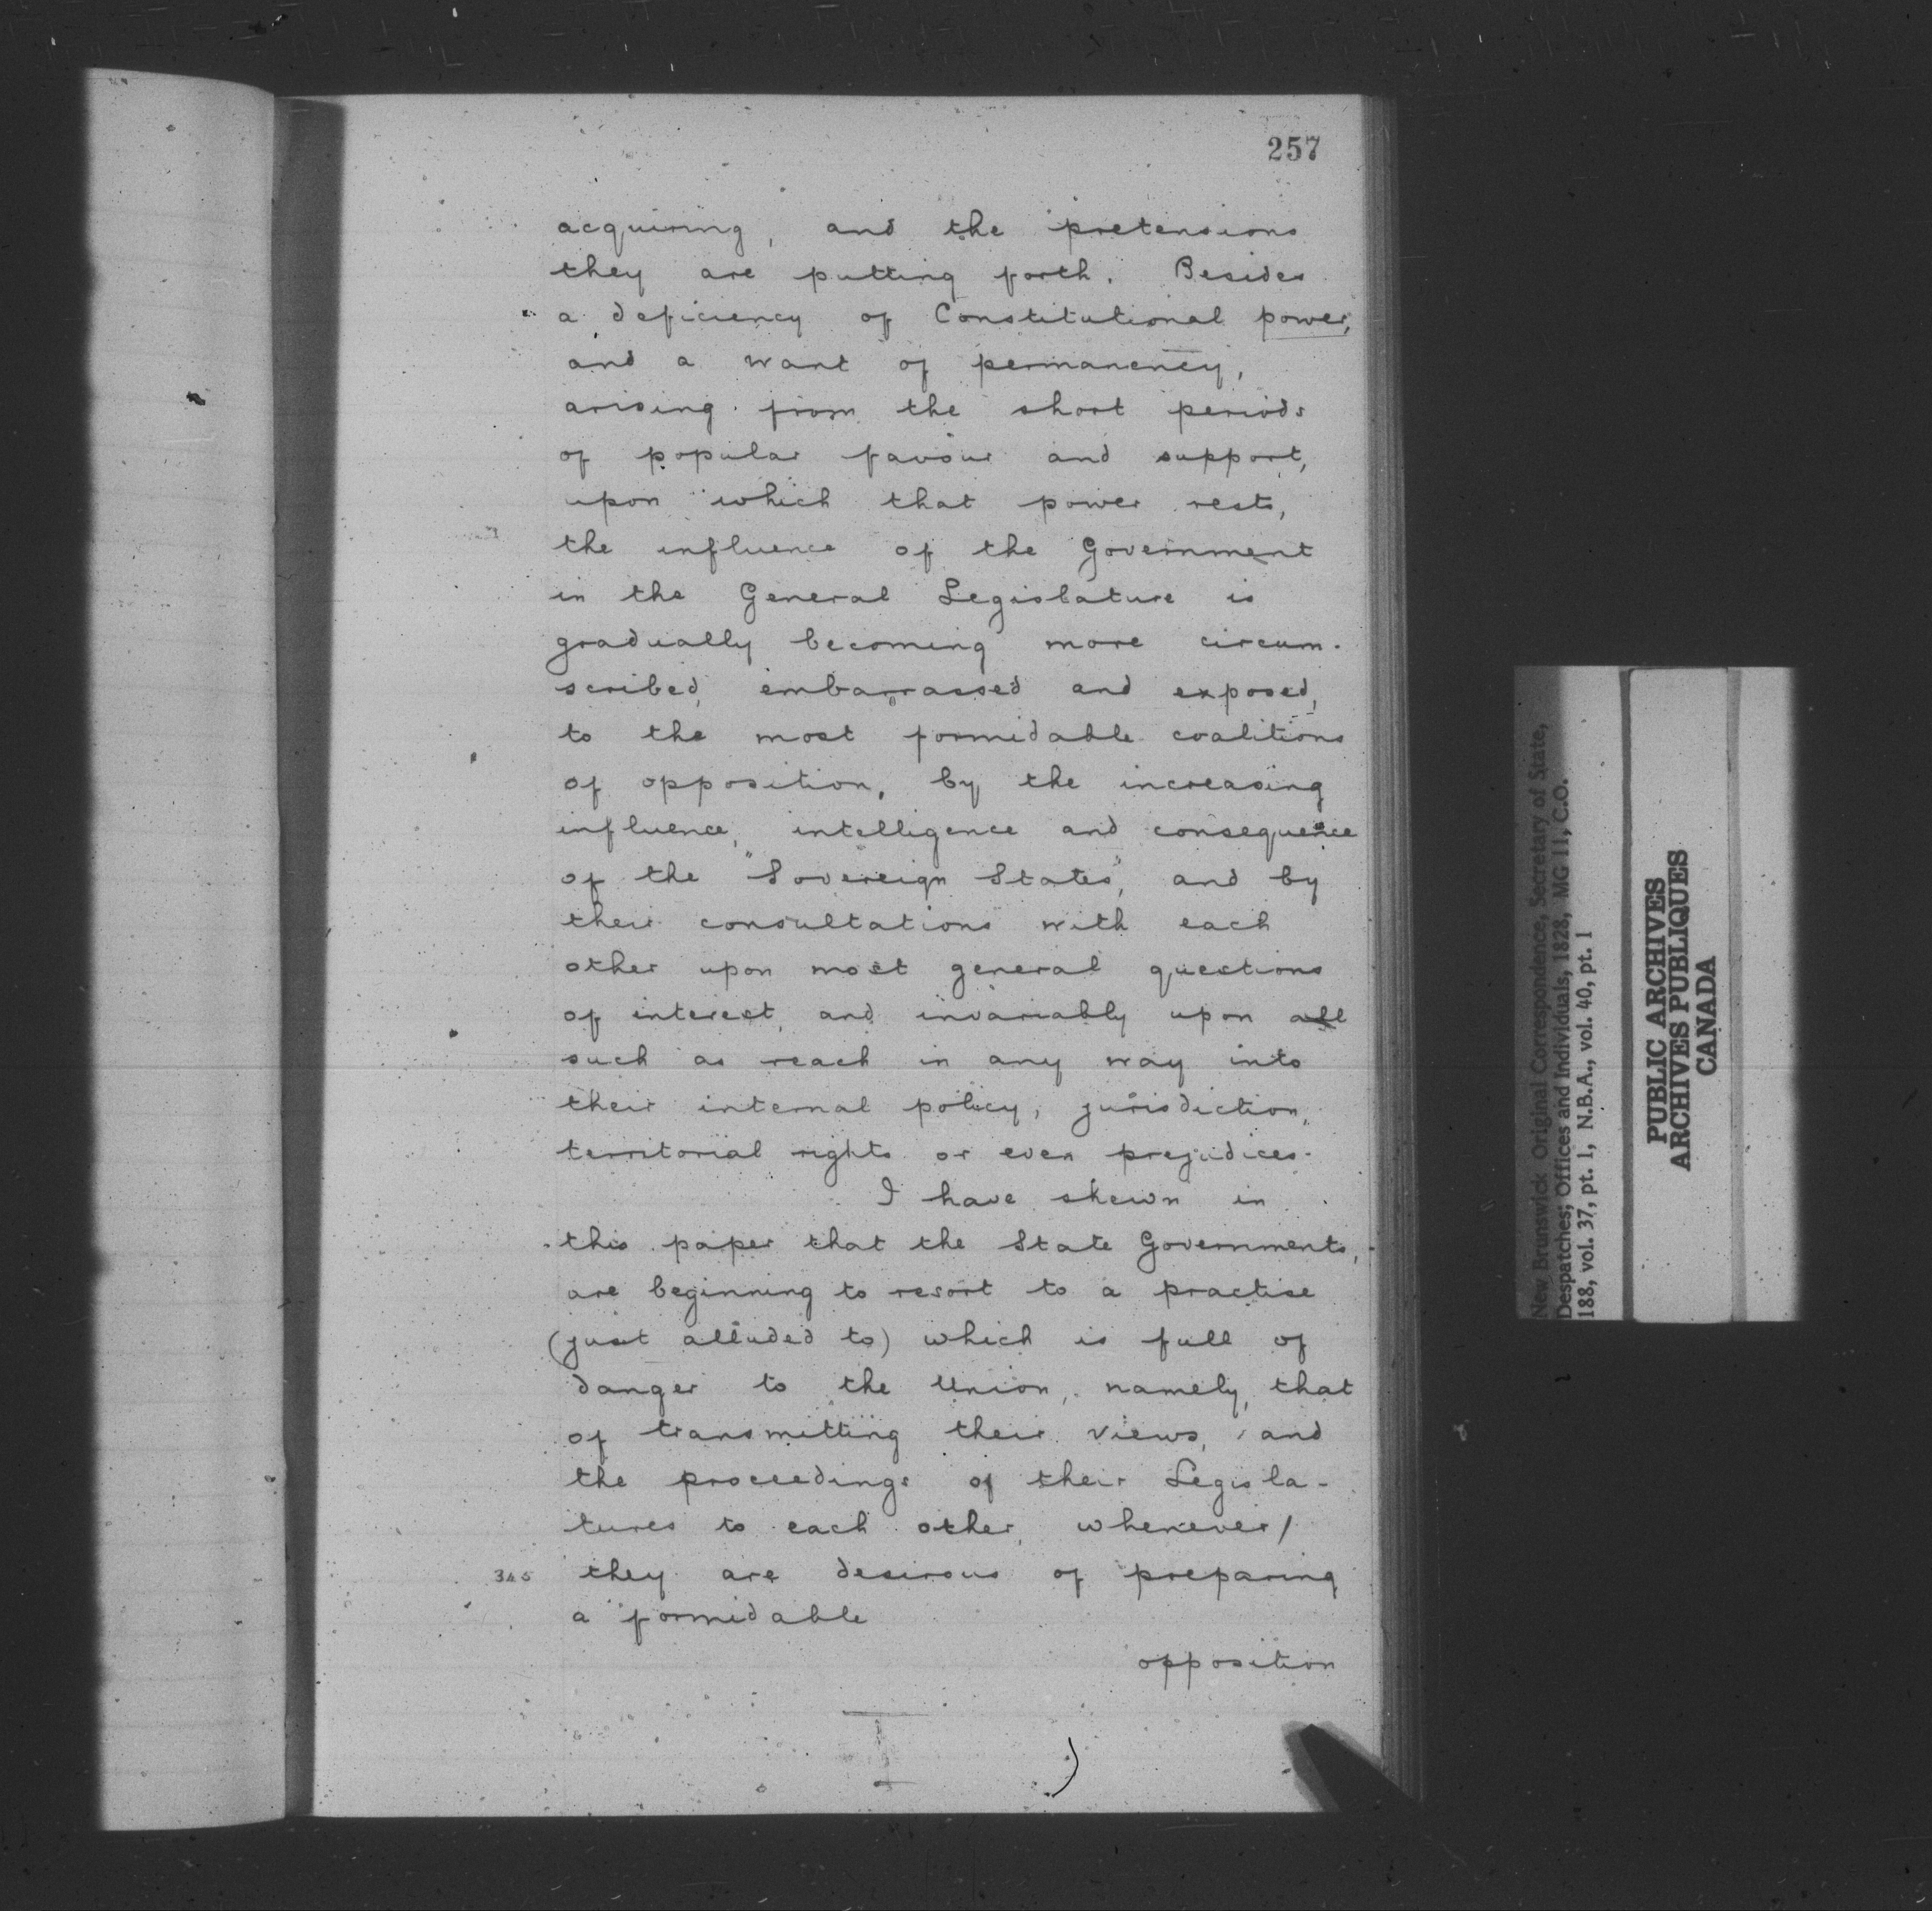 257
acquiring, and the pretensions
they are putting forth. Besides
a deficiency of Constitutional power,
and a want of permanency,
arising from the short periods
of popular favour and support,
upon which that power rests,
the influence of the Government
in the General Legislature is
gradually becoming more circum-
scribed, embarrassed and exposed,
to the most formidable coalitions
of opposition, by the increasing
influence, intelligence and consequence
of the "Sovereign States", and by
their consultations with each
other upon most general questions
of interest, and invariably upon all
such as reach in any way into
their internal policy, jurisdiction,
territorial rights or even prejudices.
I have shewn in
this paper that the State Governments,
are beginning to resort to a practise
(just alluded to) which is full of
danger to the Union, namely, that
of transmitting their views, and
the proceedings of their Legisla-
tures to each other, whenever/
345 they are desirous of preparing
a formidable
opposition
New Brunswick Original Correspondence, Secretary of State,
Despatches; Offices and Individuals, 1828, MG 11, C.O.
188, vol. 37, pt. 1, N.B.A., vol. 40, pt. 1
PUBLIC ARCHIVES
ARCHIVES PUBLIQUES
CANADA